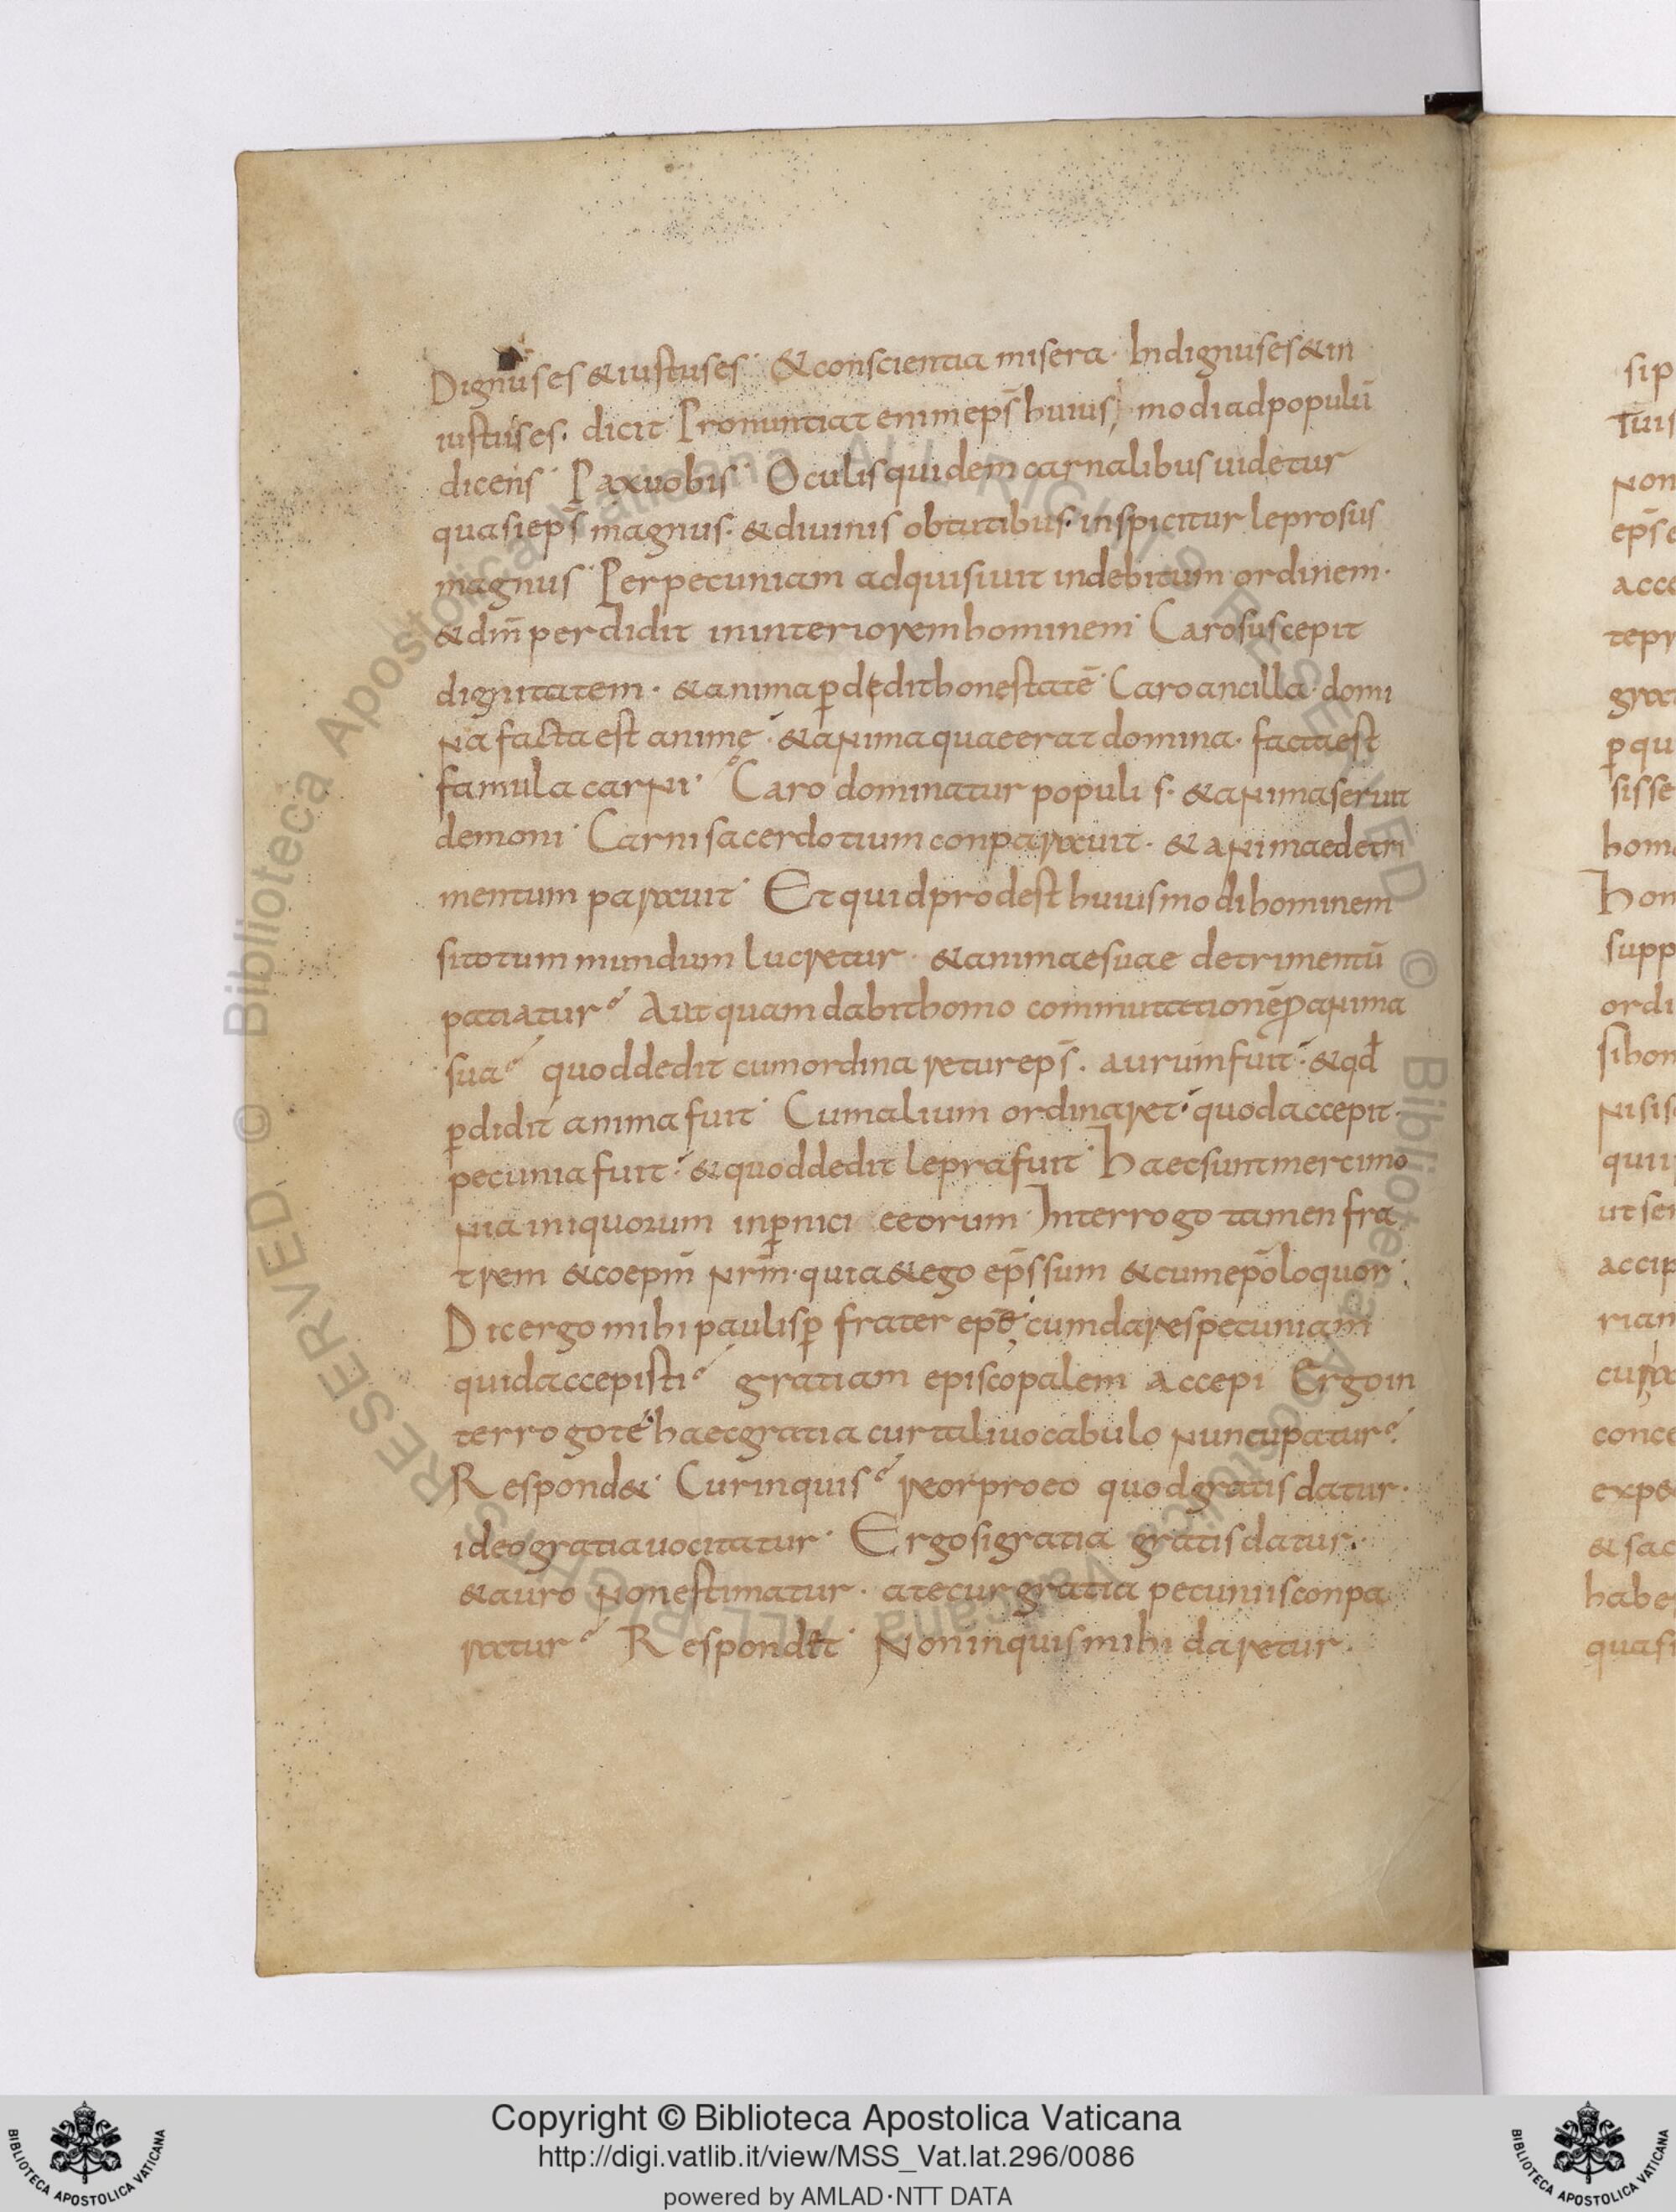 Dignus es & iustus es · & conscientia misera · Indignus es & in
iustus es · dicit Pronuntiat enim ep̄s huius modi ad populū
dicens · Pax uobis · Oculis quidem carnalibus uidetur
quasi ep̄s magnus · & diuinis obtutibus · inspicitur leprosus
magnus · Per pecuniam adquisiuit indebitum ordinem ·
& dm̄ perdidit in interiorem hominem · Caro suscepit
dignitatem · & anima ꝑdędit honestatē · Caro ancilla · domi
na facta est animę · & anima quae erat domina · facta est
famula carni · Caro dominatur populis · & anima seruit
demoni · Carni sacerdotium conparauit · & animae detri
mentum parauit · Et quid prodest huiusmodi hominem
si totum mundum lucretur · & animae suae detrimentū
patiatur? Aut quam dabit homo commutationē ꝓ anima
sua? quod dedit cum ordinaretur ep̄s · aurum fuit · & qd̄
ꝑdidit anima fuit · Cum alium ordinaret · quod accepit ·
pecunia fuit · & quod dedit lepra fuit · Haec sunt mercimo
nia iniquorum in ꝑnici eeorum · Interrogo tamen fra
trem & coepm̄ nrm̄ · quia & ego ep̄s sum & cum epō loquor ·
Dic ergo mihi paulisꝑ frater epē cum dares pecuniam
quid accepisti? gratiam episcopalem accepi Ergo in
terrogo te haec gratia cur tali uocabulo nuncupatur?
Respond& · Cur inquis? reor pro eo quod gratis datur ·
ideo gratia uocitatur · Ergo si gratia gratis datur ·
& auro non estimatur · a te cur gratia pecuniis conpa
ratur? Respondet · Non inquis mihi daretur ·
sip
tuis
non
ep̄s
acce
tepr
gra
ꝑ qu
sisse
hom
Hon
supp
ordi
si hon
nisis
qui
ut ser
accip
rian
cur
conce
exp&
& sac
habe
quasi
© Biblioteca Apostolica Vaticana ALL RIGHTS RESERVED
© Biblioteca Apostolica Vaticana ALL RIGHTS RESERVED
BIBLIOTECA APOSTOLICA VATICANA
Copyright © Biblioteca Apostolica Vaticana
http://digi.vatlib.it/view/MSS_Vat.lat.296/0086
powered by AMLAD·NTT DATA
BIBLIOTECA APOSTOLICA VATICANA